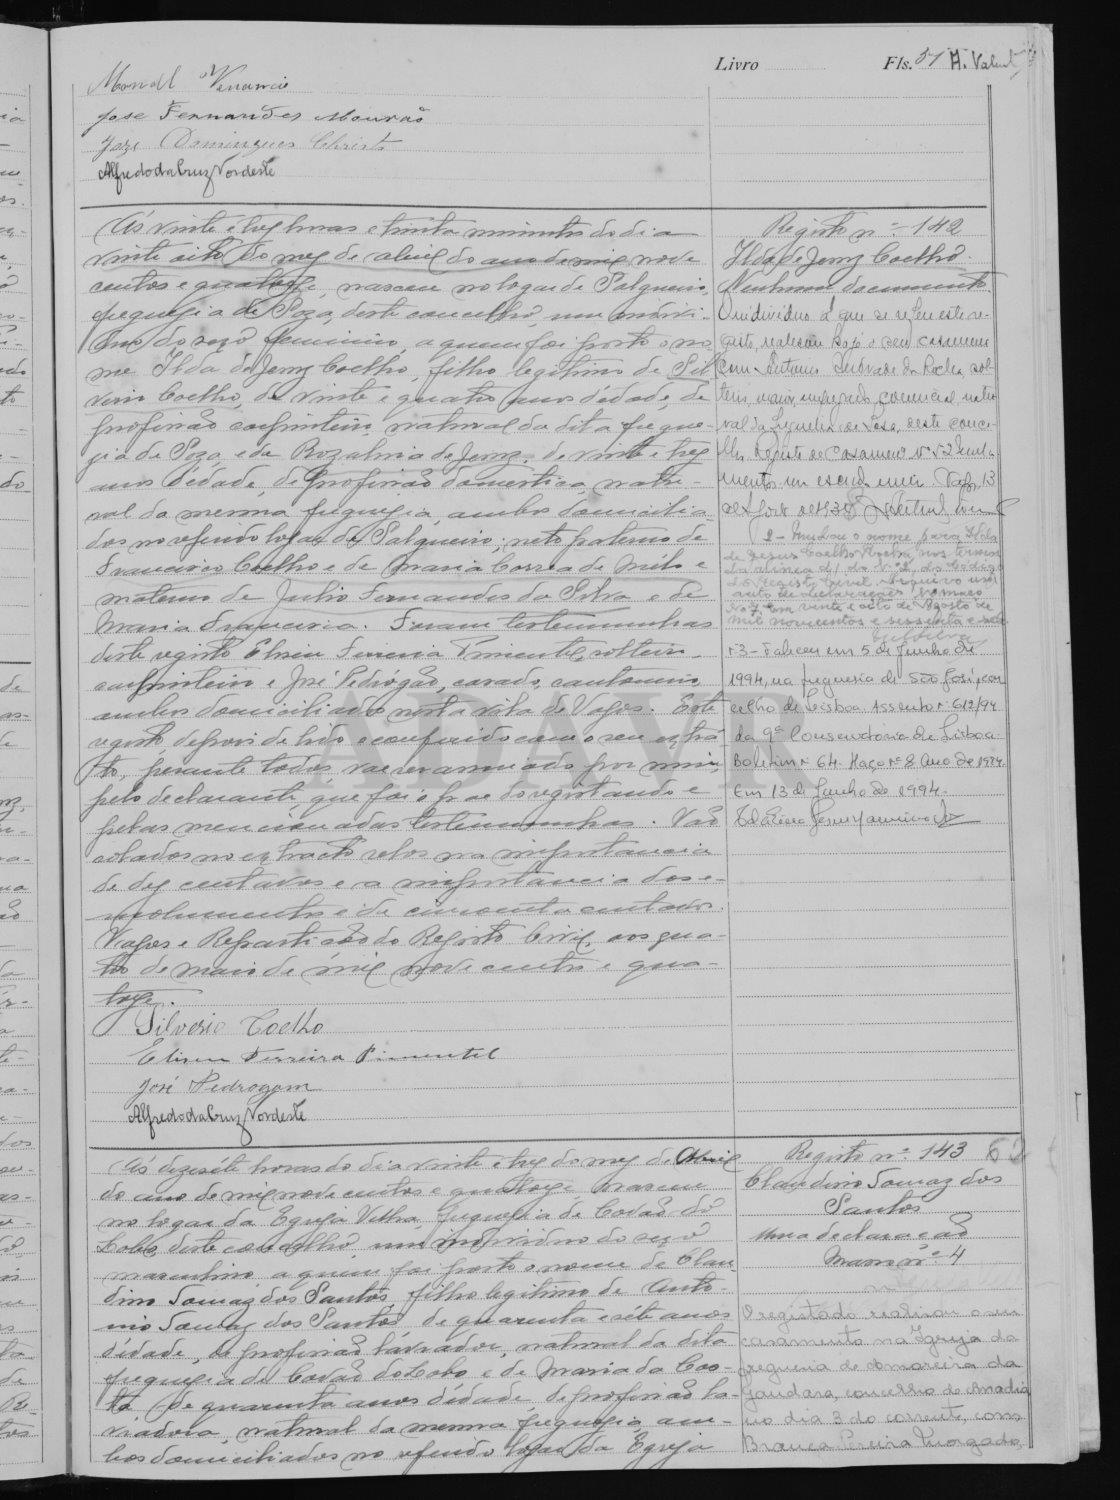 Livro Fls. 57 A. Valent
Manoel Venancio
Jose Fernandes Mourão
Joze Domingues Christo
Alfredo da Cruz Nordeste
Ás vinte e trez horas e trinta minutos do dia
vinte oito do mez de abril do ano de mil nove
centos e quatorze, nasceu no logar de Salgueiro,
freguezia de Soza, deste concelho, um indivi-
duo do sexo feminino, a quem foi posto o no-
me Ilda de Jesuz Coelho, filho legitimo de Sil
verio Coelho, de vinte e quatro anos d'edade, de
profissão carpinteiro, natural da dita fregue-
zia de Soza, e de Rozalina de Jesuz, de vinte e trez
anos d'edade, de profissão domestica, natu-
ral da mesma freguezia, ambos domicilia-
dos no referido logar de Salgueiro; neto paterno de
Francisco Coelho e de Maria Correa de Mélo e
materno de Julio Fernandes da Silva e de
Maria Francisca. Foram testemunhas
deste registo Eliseu Ferreira Pimentel, solteiro,
carpinteiro e José Pedrógão, casado, cantoneiro
ambos domiciliados nesta vila de Vagos. Este
registo, depois de lido e conferido com o seu extrá
to, perante todos, vae ser assinado por mim,
pelo declarante, que foi o pae do registando e
pelas mencionadas testemunhas. Vão
colados no extracto selos na importancia
de dez centavos e a importancia dos e-
molumentos é de cincoenta centavos.
Vagos e Repartição do Registo Civil, aos qua-
tro de maio de mil nove centos e qua-
torze.
Silverio Coelho
Eliseu Ferreira Pimentel
José Pedrogam
Alfredo da Cruz Nordeste
Registo nº 142
Ilda de Jesuz Coelho.
Nenhum documento.
O individuo a que se refere este re-
gisto, realizou hoje o seu casamento
com Antonio Andrade da Rocha, sol-
teiro, maior, empregado comercial, natu
ral da freguesia de Sosa, deste conce-
lho. Registo de Casamento nº 52
2 - Mudou o nome para Ilda
de Jesus Coelho Rocha, nos termos
da alinea d) do nº 2 do Codigo
do Registo Civil. Arquivo um
auto de declarações, no maço
nº 7. Em vinte e oito de Agosto de
mil novecentos e sessenta e
nº 3 - Faleceu em 5 de Junho de
1994, na freguesia de São José, con
celho de Lisboa. Assento nº 612/94
da 9ª Conservatoria de Lisboa.
Boletim nº 64. Maço nº 8 Ano de 1994.
Em 13 de Junho de 1994.
ADAVR
Ás dezeséte horas do dia vinte e trez do mez de Abril
do ano de mil nove centos e quatorze nasceu
no logar da Egreja Velha, freguezia de Covão do
Lobo, deste concelho, um individuo do sexo
masculino a quem foi posto o nome de Clau-
dino Tomaz dos Santos, filho legitimo de Anto-
nio Tomaz dos Santos, de quarenta e séte anos
d'edade, de profissão lavrador, natural da dita
freguezia de Covão do Lobo, e de Maria da Cos-
ta, de quarenta anos d'edade, de profissão la-
vradora, natural da mesma freguezia, am-
bos domiciliados no referido logar da Egreja
Registo nº 143 62
Claudino Tomaz dos
Santos
Uma declaração
Masso nº 4
O registado realisou o seu
casamento na Igreja da
freguesia de Amoreira da
Gandara, concelho de Anadia
no dia 3 do corrente, com
Branca Pereira Morgado,